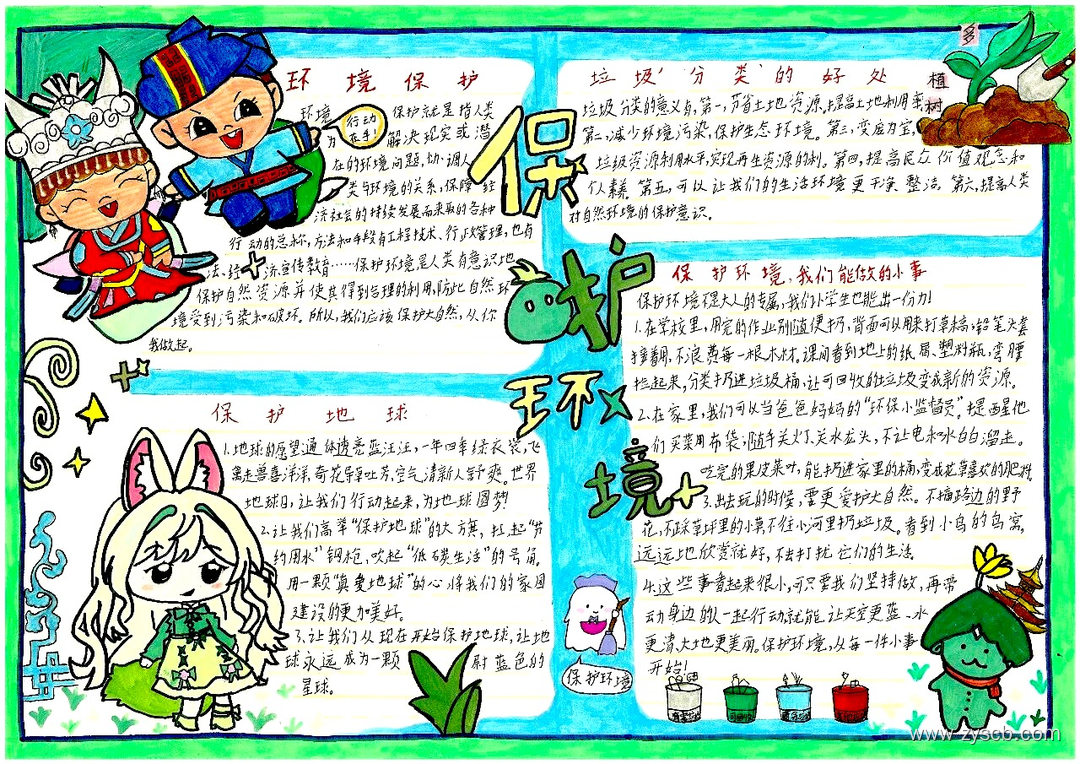 环境保护
环境保护就是指人类
为解决现实或潜
在的环境问题,协调人
类与环境的关系,保障经
济社会的持续发展而采取的各种
行动的总称,方法和手段有工程技术、行政管理,也有
法、经济、宣传教育……保护环境是人类有意识地
保护自然资源并使其得到合理的利用,防止自然环
境受到污染和破坏。所以,我们应该保护大自然,从你
我做起。
行动
保护环境
垃圾分类的好处
垃圾分类的意义有,第一,节省土地资源,提高土地利用率
第二,减少环境污染,保护生态环境。第三,变废为宝,
垃圾资源利用水平,实现再生资源的利。第四,提高民众价值观念和
素。第五,可以让我们的生活环境更干净整洁。第六,提高人类
对自然环境的保护意识。
多
植
树
保护环境、我们能做的小事
保护环境不是大人的专属,我们小学生也能出一份力!
1.在学校里,用完的作业别随便扔,背面可以用来打草稿;铅笔头套
着用,不浪费每一根木材。课间看到地上的纸屑、塑料瓶,弯腰
捡起来,分类扔进垃圾桶,让可回收的垃圾变成新的资源。
2.在家里,我们可以当爸爸妈妈的“环保小监督员”。提醒他
们买菜用布袋,随手关灯、关水龙头,不让电和水白白溜走。
吃完的果皮菜叶,能扔进家里的桶,变成花草喜欢的肥料。
3.出去玩的时候,需更爱护大自然。不摘路边的野
花,不踩草坪里的小草不往小河里扔垃圾。看到小鸟的鸟窝,
远远地欣赏就好,不去打扰它们的生活。
4.这些事看起来很小,可只要我们坚持做,再带
动身边的人一起行动就能让天空更蓝、水
更清,大地更美丽。保护环境,从每一件小事
开始!
保护地球
1.地球的愿望通体透亮蓝汪汪,一年四季绿衣装,飞
禽走兽喜洋洋,奇花异草吐芳,空气清新人舒爽。世界
地球日,让我们行动起来,为地球圆梦
2.让我们高举“保护地球”的大旗,扛起“节
约用水”钢枪,吹起“低碳生活”的号角。
用一颗“真爱地球”的心将我们的家园
建设的更加美好。
3.让我们从现在开始保护地球,让地
球永远成为一颗蔚蓝色的
星球。
保护环境
www.zyscb.com